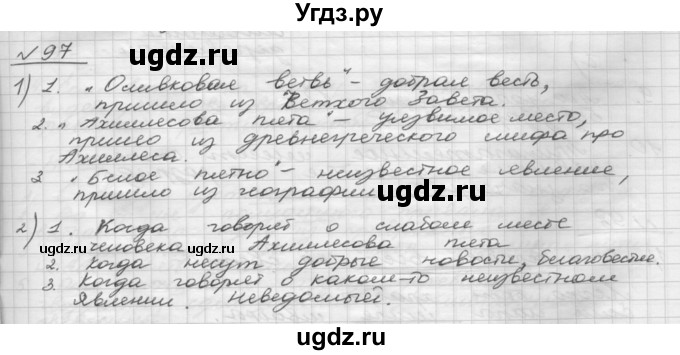 Угдз.ру
№97
1) 1. „Оливковая ветвь" – добрая весть,
пришло из Ветхого Завета.
2. „Ахиллесова пята" – уязвимое место,
пришло из древнегреческого мифа про
Ахиллеса.
3 „Белое пятно" – неизвестное явление,
пришло из географии
ugdz.ru
ugdz.ru
ugdz.ru
ugdz.ru
2) 1. Когда говорят о слабом месте
человека Ахиллесова пята
2. Когда несут добрые новости, благовестие.
3. Когда говорят о каком-то неизвестном
явлении. Неведомый.
ugdz.ru
ugdz.ru
ugdz.ru
ugdz.ru